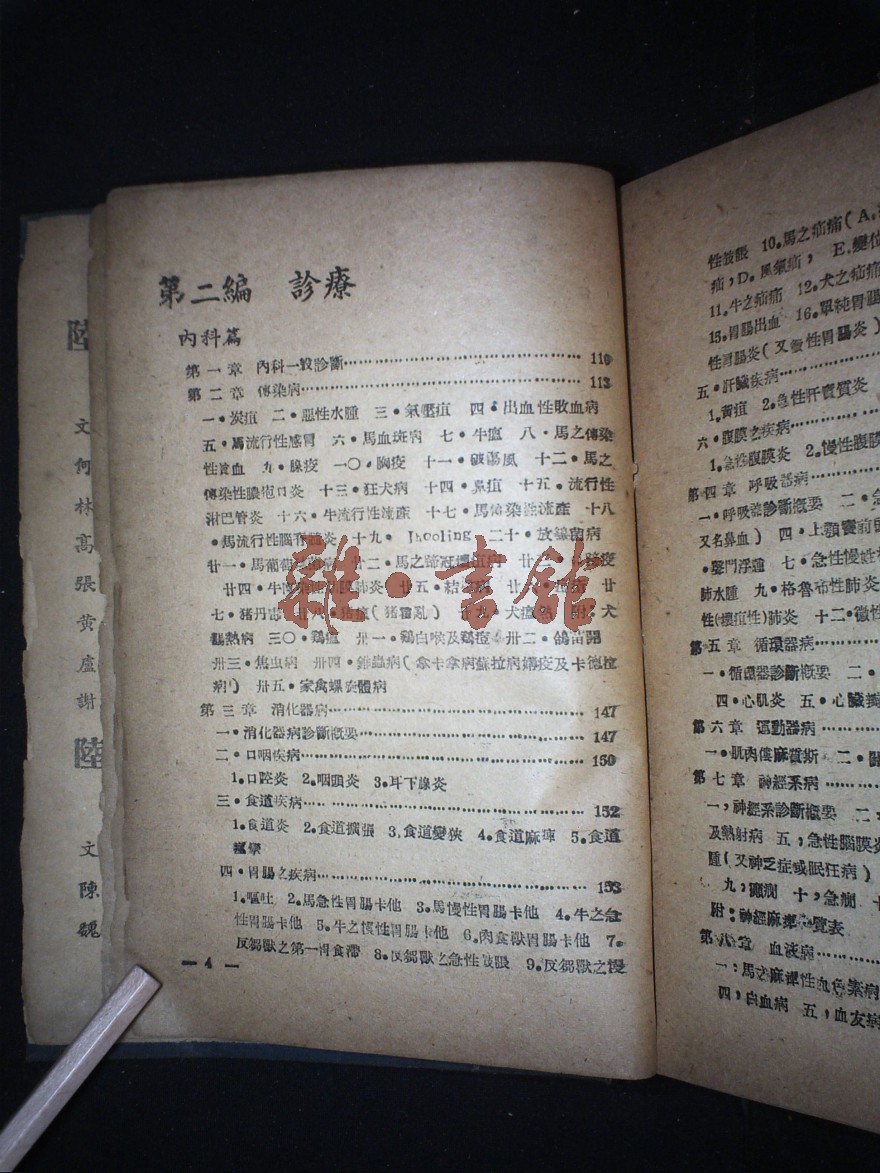 第二編 診療
內科篇
第一章 內科一般診斷 110
第二章 傳染病 113
一・炭疽 二・惡性水腫 三・氣腫疽 四・出血性敗血病
五・馬流行性感冒 六・馬血斑病 七・牛瘟 八・馬之傳染
性貧血 九・腺疫 一〇・胸疫 十一・破傷風 十二・馬之
傳染性膿疱口炎 十三・狂犬病 十四・鼻疽 十五・流行性
淋巴管炎 十六・牛流行性流產 十七・馬傳染性流產 十八
・馬流行性腦脊髓炎 十九・ 二十・放線菌病
廿一・馬葡萄 廿二・馬之蹄冠 疫
廿四・牛傳染 膜肺炎 廿五・結核病 廿
七・猪丹毒 (猪霍亂) 九・犬瘟熱 附:犬
熱病 三〇・鷄瘟 卅一・鷄白喉及鷄痘 卅二・
卅三・焦虫病 卅四・錐蟲病(拿卡拿病蘇拉病媾疫及卡德拉
病) 卅五・家禽螺旋體病
第三章 消化器病 147
一・消化器病診斷概要 147
二・口咽疾病 150
1。口腔炎 2。咽頭炎 3。耳下腺炎
三・食道疾病 152
1。食道炎 2。食道擴張 3。食道變狹 4。食道麻痺 5。食道
痙攣
四・胃腸之疾病 153
1。嘔吐 2。馬急性胃腸卡他 3。馬慢性胃腸卡他 4。牛之急
性胃腸卡他 5。牛之慢性胃腸卡他 6。肉食獸胃腸卡他 7。
反芻獸之第一胃食滯 8。反芻獸之急性鼓脹 9。反芻獸之慢
— 4 —
性鼓脹 10。馬之疝痛(A。
疝,D。風氣疝, E。變位
11。牛之疝痛 12。犬之疝痛
15。胃腸出血 16。單純胃腸
性胃腸炎(又 性胃腸炎)
五・肝臟疾病
1。黃疸 2。急性肝實質炎
六・腹膜之疾病
1。急性腹膜炎 2。慢性腹膜
第四章 呼吸器病
一・呼吸器診斷概要 二・急
又名鼻血) 四・上顎竇前
・聲門浮腫 七・急性慢性
肺水腫 九・格魯布性肺炎
性(壞疽性)肺炎 十二・
第五章 循環器病
一・循環器診斷概要 二・
四・心肌炎 五・心臟擴
第六章 運動器病
一・肌肉僂麻質斯 二・關
第七章 神經系病
一,神經系診斷概要 二
及熱射病 五,急性腦膜炎
腫(又神乏症或眠狂病)
九,癲癇 十,急癇 十
附:神經麻痺一覽表
第八章 血液病
一:馬之麻痺性血色素病
四,白血病 五,血友病
陸
文何林高張黃盧謝
陸
文陳魏
雜・言館